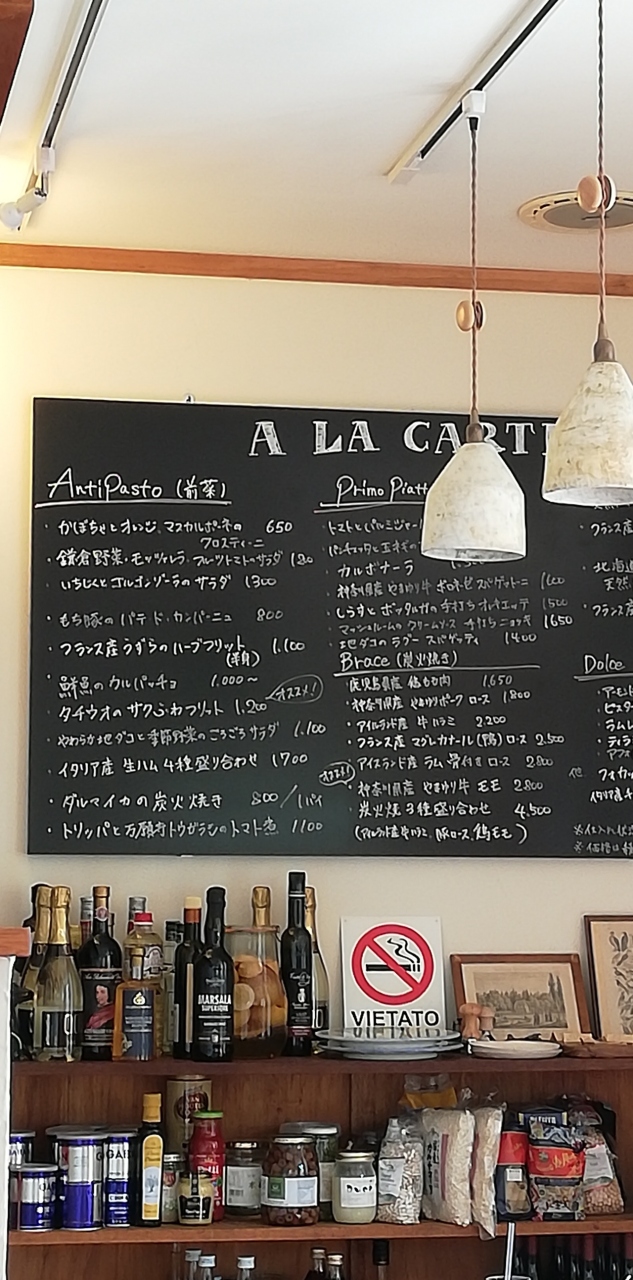 A LA CARTE
AntiPasto (前菜)
・かぼちゃとオレンジ、マスカルポーネの 650
クロスティーニ
・鎌倉野菜・モッツァレラ・フルーツトマトのサラダ
・いちじくとゴルゴンゾーラのサラダ 1300
・もち豚のパテ ド カンパーニュ 800
・フランス産うずらのハーブフリット 1.100
(半身)
・鮮魚のカルパッチョ 1.000〜
・タチウオのザクふわフリット 1,200 オススメ!
・やわらか地ダコと季節野菜のごろごろサラダ 1.100
・イタリア産 生ハム4種盛り合わせ 1700
・ダルマイカの炭火焼き 800/1パイ
・トリッパと万願寺トウガラシのトマト煮 1100
Primo Piatt
・トマトとパルミジャー
・パンチェッタと玉ネギの
カルボナーラ
・神奈川県産 やまゆり牛 ボロネーゼ スパゲットーニ
・しらすとボッタルガの手打ち オレキエッテ 1500
・マッシュルームのクリームソース 手打ちニョッキ 1650
・地ダコのラグー スパゲッティ 1400
Brace (炭火焼き)
・鹿児島県産 鶏もも肉 1.650
・神奈川県産 やまゆりポーク ロース 1.800
・アイルランド産 牛ハラミ 2.200
・フランス産 マグレカナール(鴨)ロース 2.500
・アイスランド産 ラム 骨付きロース 2.800
オススメ!
・神奈川県産 やまゆり牛 モモ 2.800
・炭火焼3種盛り合わせ 4,500
(アイルランド産牛ハラミ、豚ロース、鶏モモ)
フランス産
北海道
天然
・フランス産
Dolce
・ピスタ
・ティラ
他
MARSALA
SUPERIORE
VIETATO